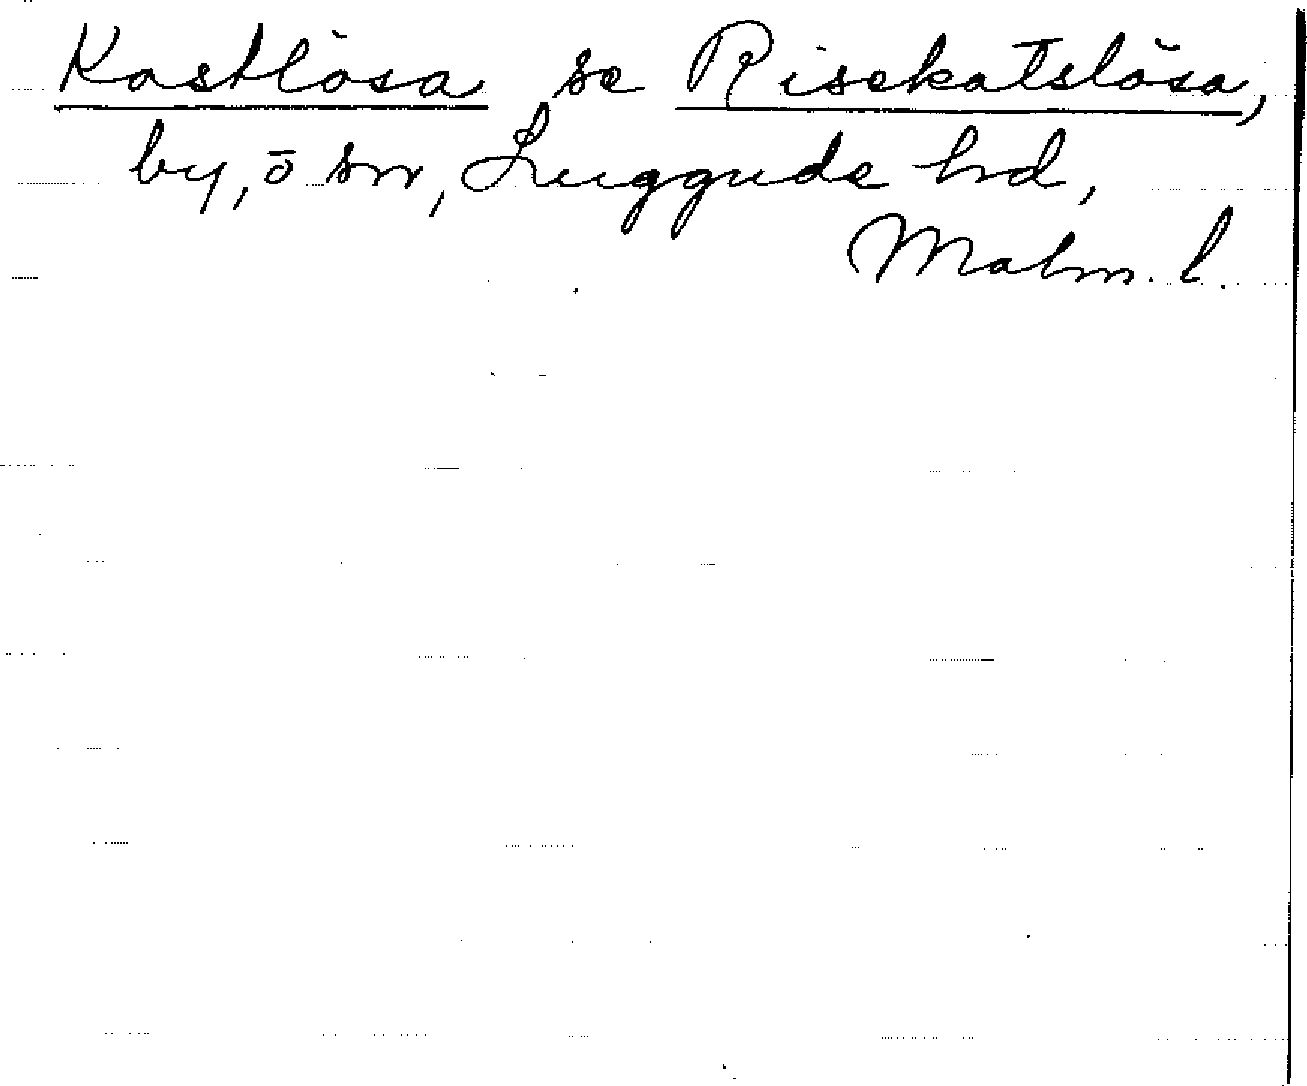 Kastlösa se Risekatslösa,
by, ö sn, Luggude hd,
Malm. l.